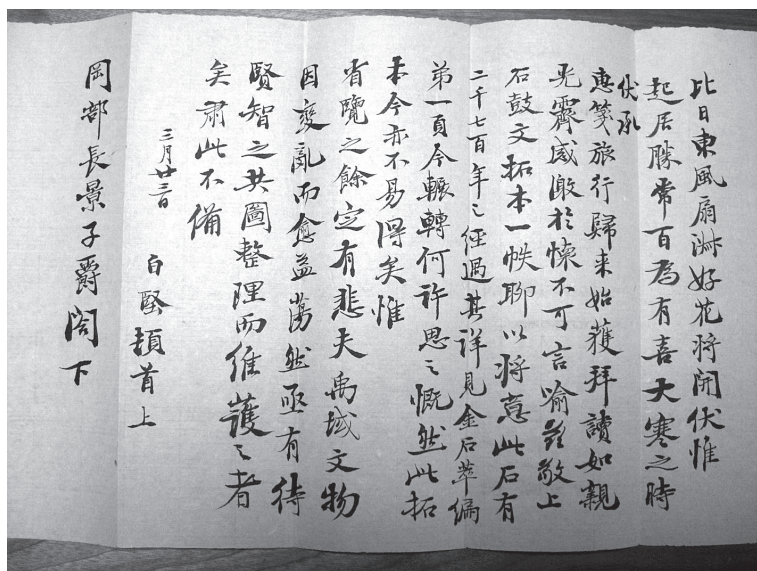 比日東風扇淋好花将開伏惟
起居勝常百為有喜大寒之時
伏承
惠箋旅行歸来始獲拜讀如親
光霽感激於懐不可言喻茲敬上
石鼓文拓本一帙聊以将意此石有
二千七百年之經過其詳見金石萃编
弟一頁今輾轉何許思之慨然此拓
本今亦不易得矣惟
省覽之餘定有悲夫禹域文物
因變亂而愈益蕩然亟有待
賢智之共圖整理而維護之者
矣肅此不備
三月廿三日
白堅頓首上
岡部長景子爵閣下